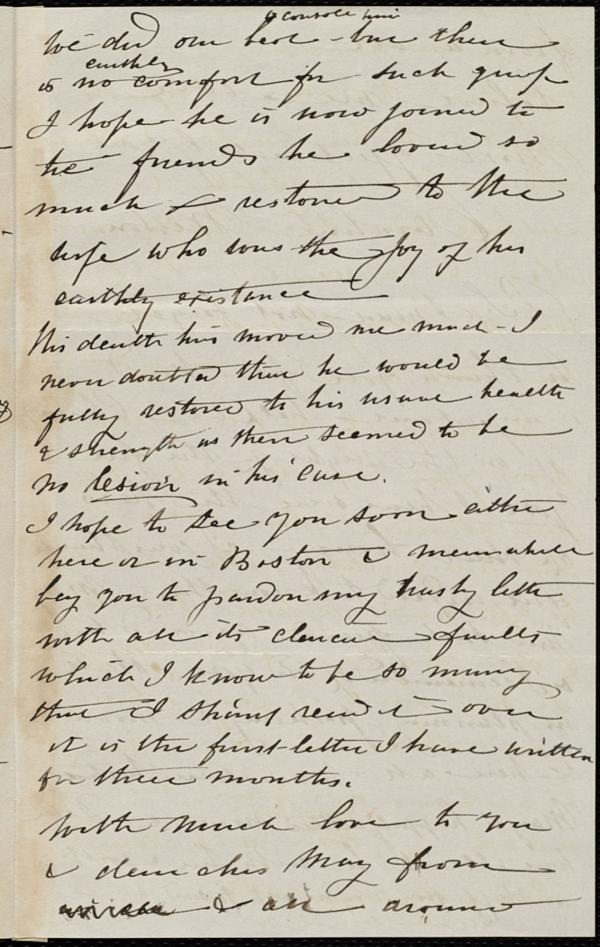 to console him
We did our best - but there
earthly
is no comfort for such grief
I hope he is now joined to
the friends he loved so
much & restored to the
wife who was the joy of his
earthly existance
His death has moved me much - I
never doubted that he would be
fully restored to his usual health
& strength as there seemed to be
no lesion in his case.
I hope to see you soon either
here or in Boston & meanwhile
beg you to pardon my hasty letter
with all its faults
which I know to be so many
that I read it over
it is the first letter I have written
for three months.
With much love to you
& dear May from
& all around